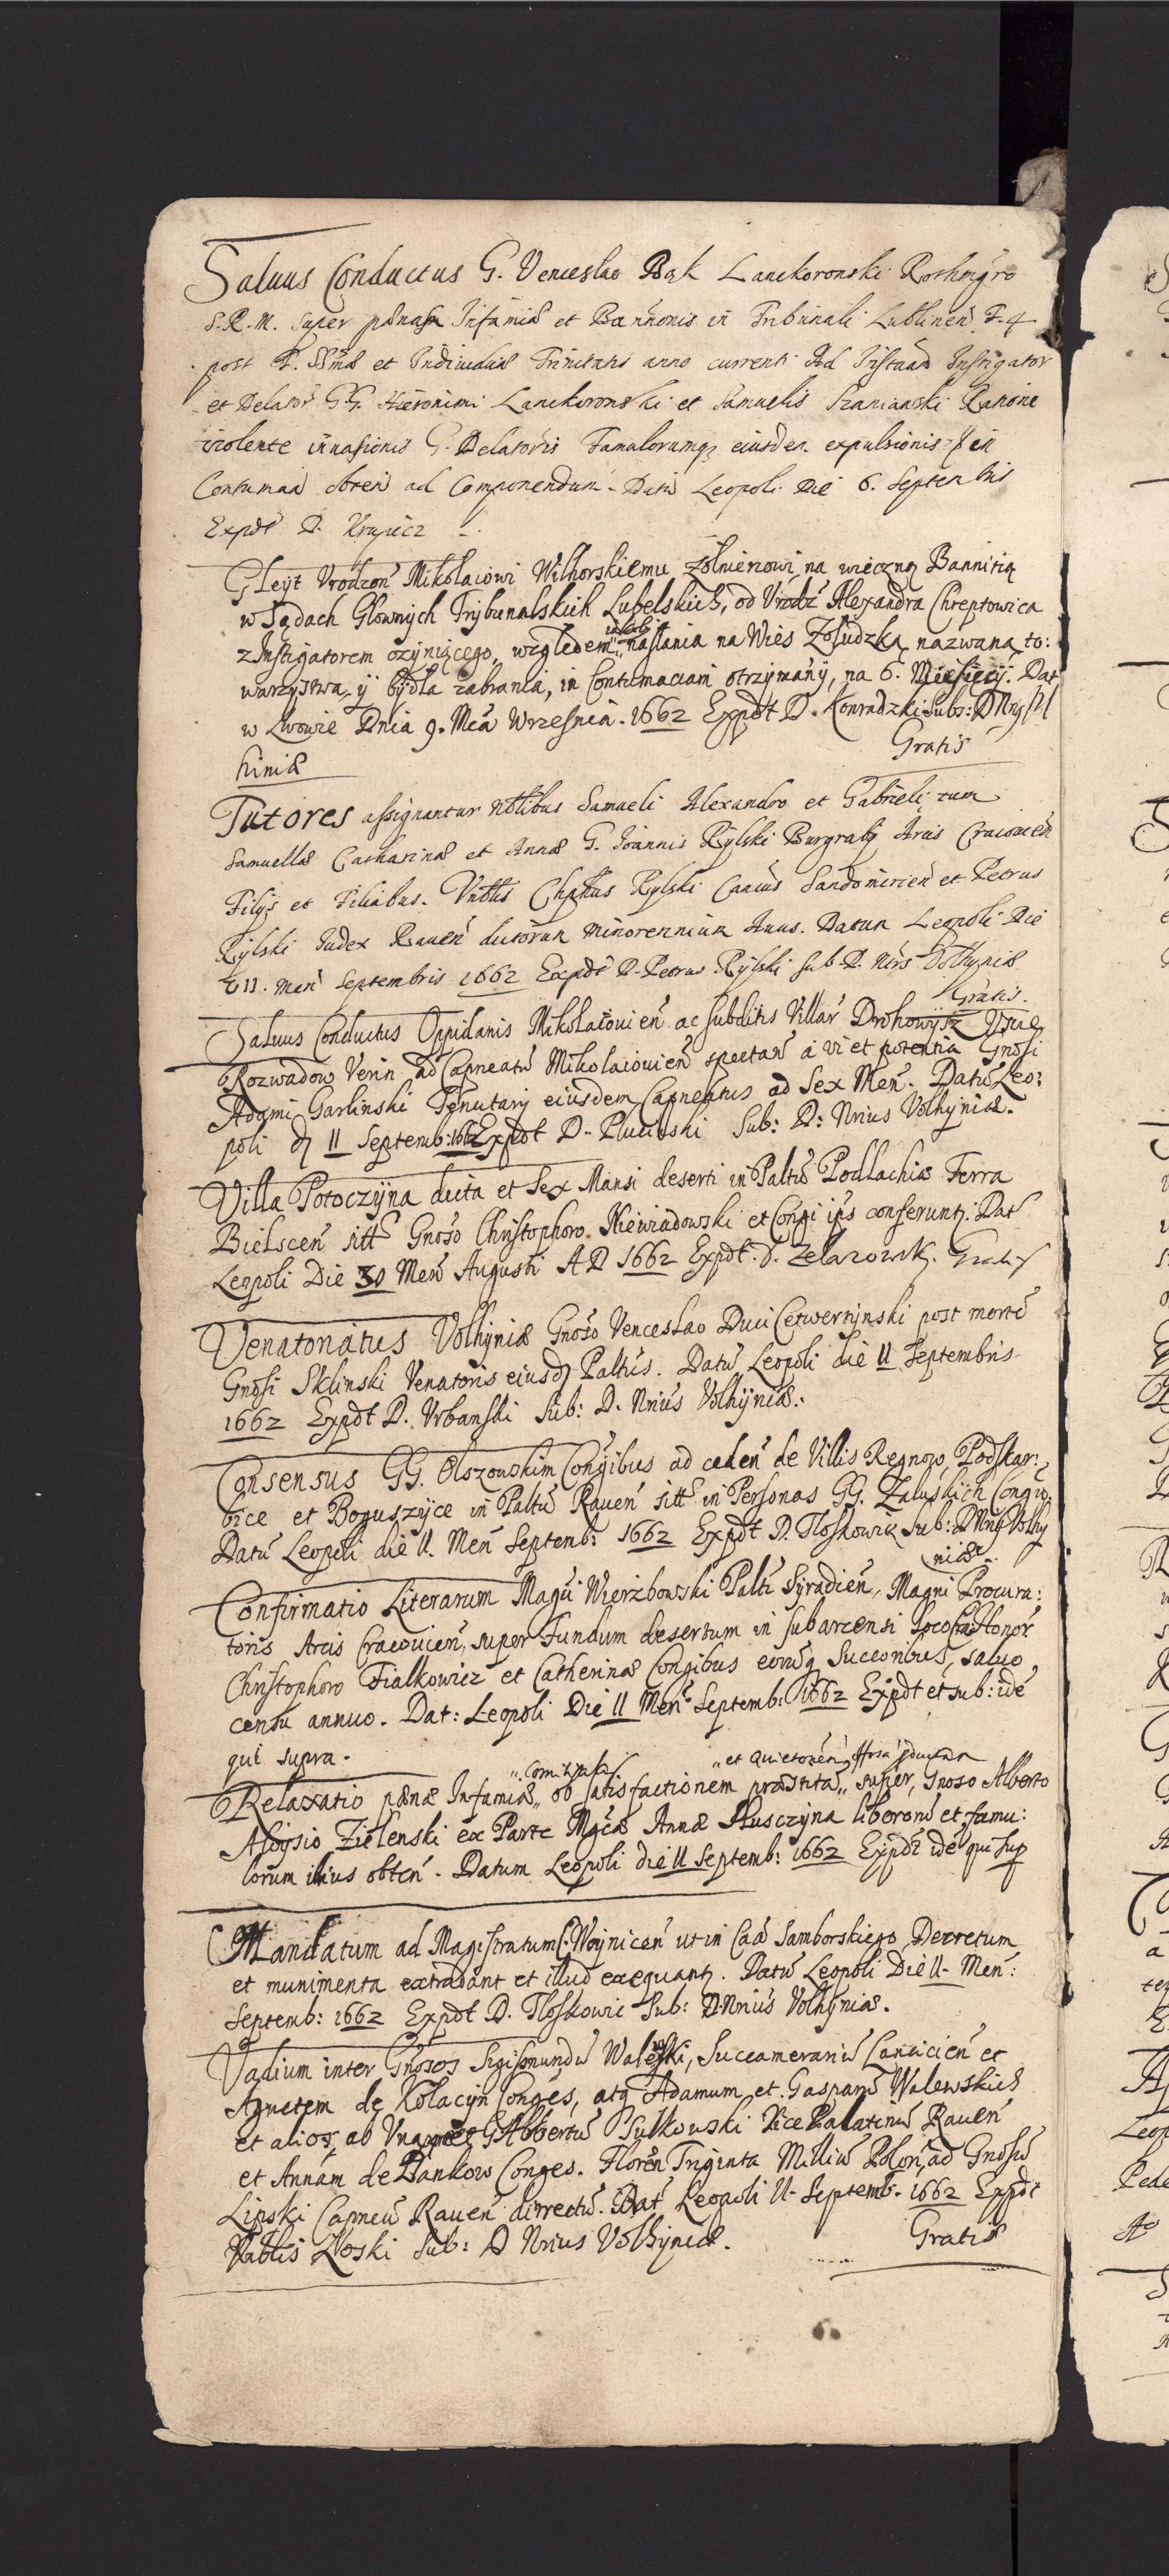 Saluus Conductus G. Venceslao Bąk Lanckoronski Rothmgro
S.R.M. super pœnam Infamiæ et Bannonis in Tribunali Lublinen̄ F. 4
post F. SSmæ et Indiuiduæ Trinitatis anno currenti Ad Instaād Instigator
et Delator GG. Hieronimi Lanckoronski et Samuelis Ratione
violentæ inuasionis G. Delatoris Famulorumq eiusdem expulsionis in
Contumaā obten̄ ad Componendum. Datū Leopoli Die 6. Septembris
Expdt D. Krajicz
Gleyt Vrodzon̄ Mikolaiowi Wilhorskiemu żołnierzowi na wieczną Bannitią
w Sądach Głownych Trybunalskich Lubelskich, od Vrodz̄ Alexandra Chreptowica
z Instigatorem czyniącego, względem naslania na Wies Zosudzką nazwaną to:
warzystwa y bydła zabrania, in Contumaciam otrzymany, na 6. Miesięcy. Dat
w Lwowie Dnia 9. Mcā Wrzesnia. 1662 Expdt D. Konradzki Subs: D
hiniæ Gratis
Tutores assignantur Nōtlibus Samueli Alexandro et Gabrieli, tum
Samuellæ Catharinæ et Annæ G. Ioannis Rylski Burgrabij Arcis Cracouień
Filijs et Filiabus. Vnōtlis Chphus Rylski Sandomirień et Petrus
Rylski Iudex Rauen̄ dictorum Minorennium Auus. Datum Leopoli Die
11. Men̄ Septembris 1662 Expdt D. Petrus Rylski sub D. Nrīs Volhyniæ
Gratis.
Saluus Conductus Oppidanis Mikołaiouien̄ ac subditis Villar̄ Drohowysz
Rozwadow Verin ad Capneatū Mikolaiouien̄ spectan̄ a vi et potentia Gnosi
Adami Garlinski Tenutarij eiusdem Capneatus ad Sex Men̄. Datū Leo:
poli d 11 Septemb: 1662 Expdt D. Sub: D: Nrius Volhyniæ.
Villa Potoczyna dicta et Sex Mansi deserti in Paltū Podlachiæ Terra
Bielscen̄ sitt Gnoso Christophoro Niewiadowski et Congi ips conferuntr. Dat
Leopoli Die 30 Men̄ Augusti AD 1662 Expdt. D. Zelazowsk. Gratis
Venatoriatus Volhyniæ Gnoso Venceslao Duci Cetwertynski post mortē
Gnosi Sklinski Venatoris eiusd Paltūs. Datū Leopoli die 11 Septembris
1662 Expdt D. Vrbanski Sub: D. Nrius Volhyniæ.
Consensus GG. Olszouskim Congibus ad ceden̄ de Villis Regnow, Podskar:
bice et Boguszyce in Paltū Rauen̄ sitt in Personas GG. Zaluskich Congū.
Datū Leopoli die 11. Men̄ Septemb: 1662 Expdt D. Tloskowic Sub: D Nrius Volhy
niæ.
Confirmatio Literarum Magci Wierzbowski Palti Syradien̄, Magni Procura:
toris Arcis Cracouien̄, super Fundum desertum in subarcensi Loco Honor̄
Christophoro Fialkowicz et Catherinæ Congibus eorūq Succoribus, saluo
censu annuo. Dat: Leopoli Die 11 Men̄ Septemb: 1662 Expdt et sub: idē
qui supra.
et Quietoꝛen̄
Relaxatio pœnæ Infamiæ, ob satisfactionem præstitā super, Gnoso Alberto
Aloysio Zielenski ex Parte Mgcæ Annæ Słusczyna liberorū et famu:
lorum illius obten̄. Datum Leopoli die 11 Septemb: 1662 Expdt idē qui sup
Mandatum ad Magistratum C. Woynicen̄ ut in Caā Samborskiego Decretum
et munimenta extradant et illud exequantr. Datū Leopoli Die 11. Men̄:
Septemb: 1662 Expdt D. Tloskowic Sub: D Nrius Volhyniæ.
Vadium inter Gnosos Sigismundū Walewski, Succamerariū Lancicien̄ et
Agnetem de Kolacyn Conges, atq Adamum et Gasparū Walewskich
et alios, ab Vna, et G Albertū Sulkowski Vice Palatinū Rauen̄
et Annam de Dankow Conges. Floren̄ Triginta Milliū Polon̄, ad Gnosū
Lipski Capneū Rauen̄ dirrectū. Dat Leopoli 11 Septemb. 1662 Expdt
Nablis Zloski Sub: D Nrius Volhyniæ. Gratis